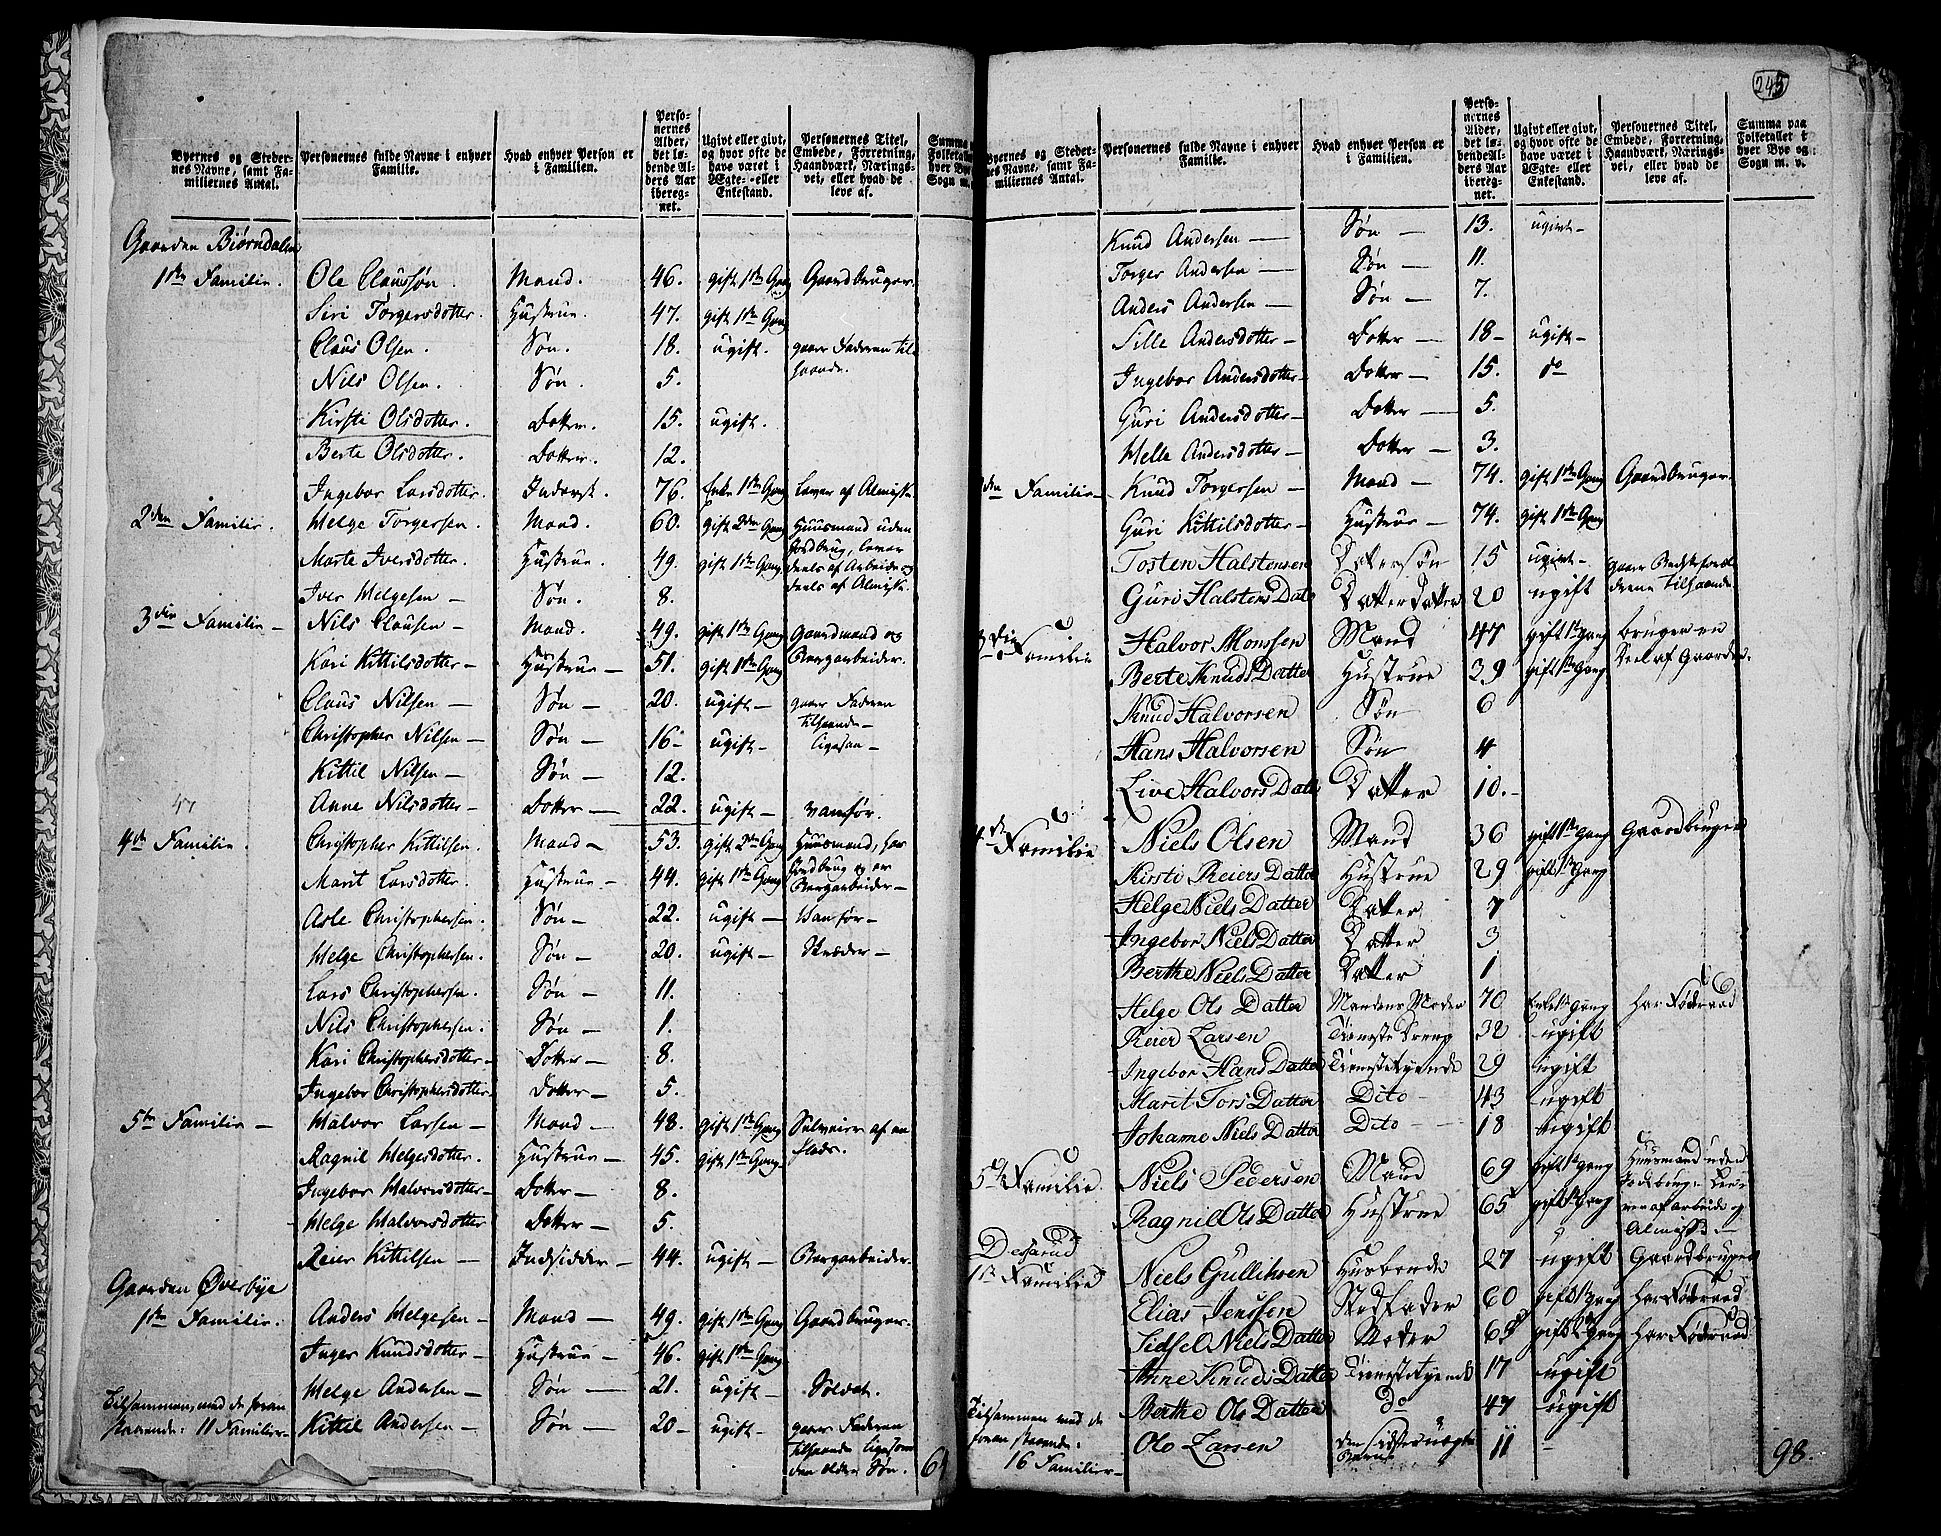 245
Byernes og Steder-
nes Navne, samt Fa-
miliernes Antal.
Personernes fulde Navne i enhver
Familie.
Hvad enhver Person er
i Familien.
Perso-
nernes
Alder,
det lø-
bende Al-
ders Aar
iberegn-
net.
Ugivt eller givt,
og hvor ofte de
have været i
Ægte- eller
Enkestand.
Personernes Titel,
Embede, Forretning,
Haandværk, Nærings-
vei, eller hvad de
leve af.
Summa
Folketallet
hver Bye
Sogn m.
Gaarden Biørndalen
1ste Familie. Ole Claussøn. Mand. 46. gift 1ste Gang Gaardbruger.
Siri Torgersdotter. Hustrue. 47. gift 1ste Gang
Claus Olsen. Søn. 18. ugift. gaaer Faderen til
haande.
Nils Olsen. Søn. 5.
Kirsti Olsdotter. Dotter. 15. ugift.
Berte Olsdotter. Dotter. 12.
Ingebor Larsdotter. Inderst. 76. Enke 1ste Gang Lever af Almisse.
2den Familie. Helge Torgersen. Mand. 60. gift 2den Gang Huusmand uden
Jordbrug, lever
Marte Iversdotter. Hustrue. 49. gift 1ste Gang deels af Arbeide og
deels af Almisse.
Iver Helgesen — Søn. 8.
3die Familie — Nils Clausen — Mand. 49. gift 1ste Gang Gaardmand og
Kari Kittilsdotter — Hustrue — 51. gift 1ste Gang Bergarbeider.
Claus Nilsen — Søn — 20. ugift — gaaer Faderen
tilhaande —
Christopher Nilsen — Søn — 16 — ugift — ligesaa —
Kittil Nilsen — Søn — 12.
47
Anne Nilsdotter — Dotter — 22. ugift — vanfør.
4de Familie. Christopher Kittilsen. Mand — 53. gift 2den Gang Huusmand, har
Jordbrug og er
Marit Larsdotter. Hustrue — 44. gift 1ste Gang Bergarbeider —
Asle Christophersen. Søn — 22. ugift — Vanfør —
Helge Christophersen. Søn — 20. ugift — Skræder —
Lars Christophersen. Søn — 11.
Nils Christophersen. Søn — 1.
Kari Christophersdotter — Dotter — 8.
Ingebor Christophersdotter. Dotter — 5.
5te Familie — Halvor Larsen — Mand — 48. gift 1ste Gang Selveier af en
Ragnil Helgesdotter. Hustrue — 45. gift 1ste Gang
Ingebor Halvorsdotter — Dotter — 8.
Helge Halvorsdotter Dotter — 5.
Reier Kittilsen — Indsidder — 44. ugift — Bergarbeider.
Gaarden Øverbye
1ste Familie. Anders Helgesen — Mand — 49. gift 1ste Gang Gaardbruger.
Inger Knudsdotter — Hustrue — 46. gift 1ste Gang
Helge Andersen — Søn — 21. ugift — Soldat.
Tilsammen, med de foran
staaende: 11 Familier — Kittil Andersen — Søn — 20 — ugift — gaaer Faderen
tilhaande ligesom
den elder Søn.
Byernes og Steder-
nes Navne, samt Fa-
miliernes Antal.
Personernes fulde Navne i enhver
Familie.
Hvad enhver Person er
i Familien.
Perso-
nernes
Alder,
det lø-
bende Al-
ders Aar
iberegn-
net.
Ugivt eller givt,
og hvor ofte de
have været i
Ægte- eller
Enkestand.
Personernes Titel,
Embede, Forretning,
Haandværk, Nærings-
vei, eller hvad de
leve af.
Summa paa
Folketallet i
hver Bye og
Sogn m. v.
Knud Andersen — Søn — 13. ugivt —
Torger Andersen — Søn — 11.
Anders Andersen — Søn — 7.
Sille Andersdotter — Dotter — 18 — ugift —
Ingebor Andersdotter — Dotter — 15. do
Guri Andersdotter — Dotter — 5.
Helle Andersdotter — Dotter — 3.
den Familie — Knud Torgersen — Mand — 74. gift 1ste Gang Gaardbruger
Guri Kittilsdotter — Hustrue — 74. gift 1ste Gang
Tosten Halstensen Dattersøn 15 ugivt — gaaer Bedsteforæl
Guri Halstens Datt Datter Datter 20 ugift drene tilhaande
3die Familie Halvor Monssen Mand 47 gift 1ste gang bruger en
Berte Knuds Datter Hustrue 39 gift 1ste gang Deel af Gaarden.
Knud Halvorsen Søn 6
Hans Halvorsen Søn 4
Live Halvors Datt Datter 10. —
4de Familie Niels Olsen Mand 36 gift 1ste gang Gaardbruger
Kirsti Reiers Datter Hustrue 29 gift 1ste gang
Helge Niels Datter Datter 7
Ingebor Niels Datter Datter 3
Berthe Niels Datter Datter 1
Helge Ols Datter Mandens Moder 70 Enke 1ste gang Har Føderaad
Reier Larsen Tieneste Dreng 32 ugift
Ingebor Hans Datter Tienestetyende 29 ugift
Marit Tors Datter Dito — 43 ugift
Johanne Niels Datter Dito — 18 ugift
5te Familie Niels Pedersen Mand 69 gift 1ste gang Huusmand uden
Jordbrug. Lev-
Ragnil Ols Datter Hustrue 65 gift 1ste gang ver af arbeide og
Almisse —
1ste Familie Niels Gulliksen Husbonde 27 ugift Gaardbruger
Elias Jenssen Stedfader 60 gift 1ste gang Har Føderaad
Sidsel Niels Datter Moder 65 gift 2 gang Har Føderaad
Anne Knuds Datter Tienestetyende 17 ugift
Berthe Ols Datter do 47 ugift
Tilsammen med de
foran staaende:
16 Familier — Ole Larsen 11 — 98.